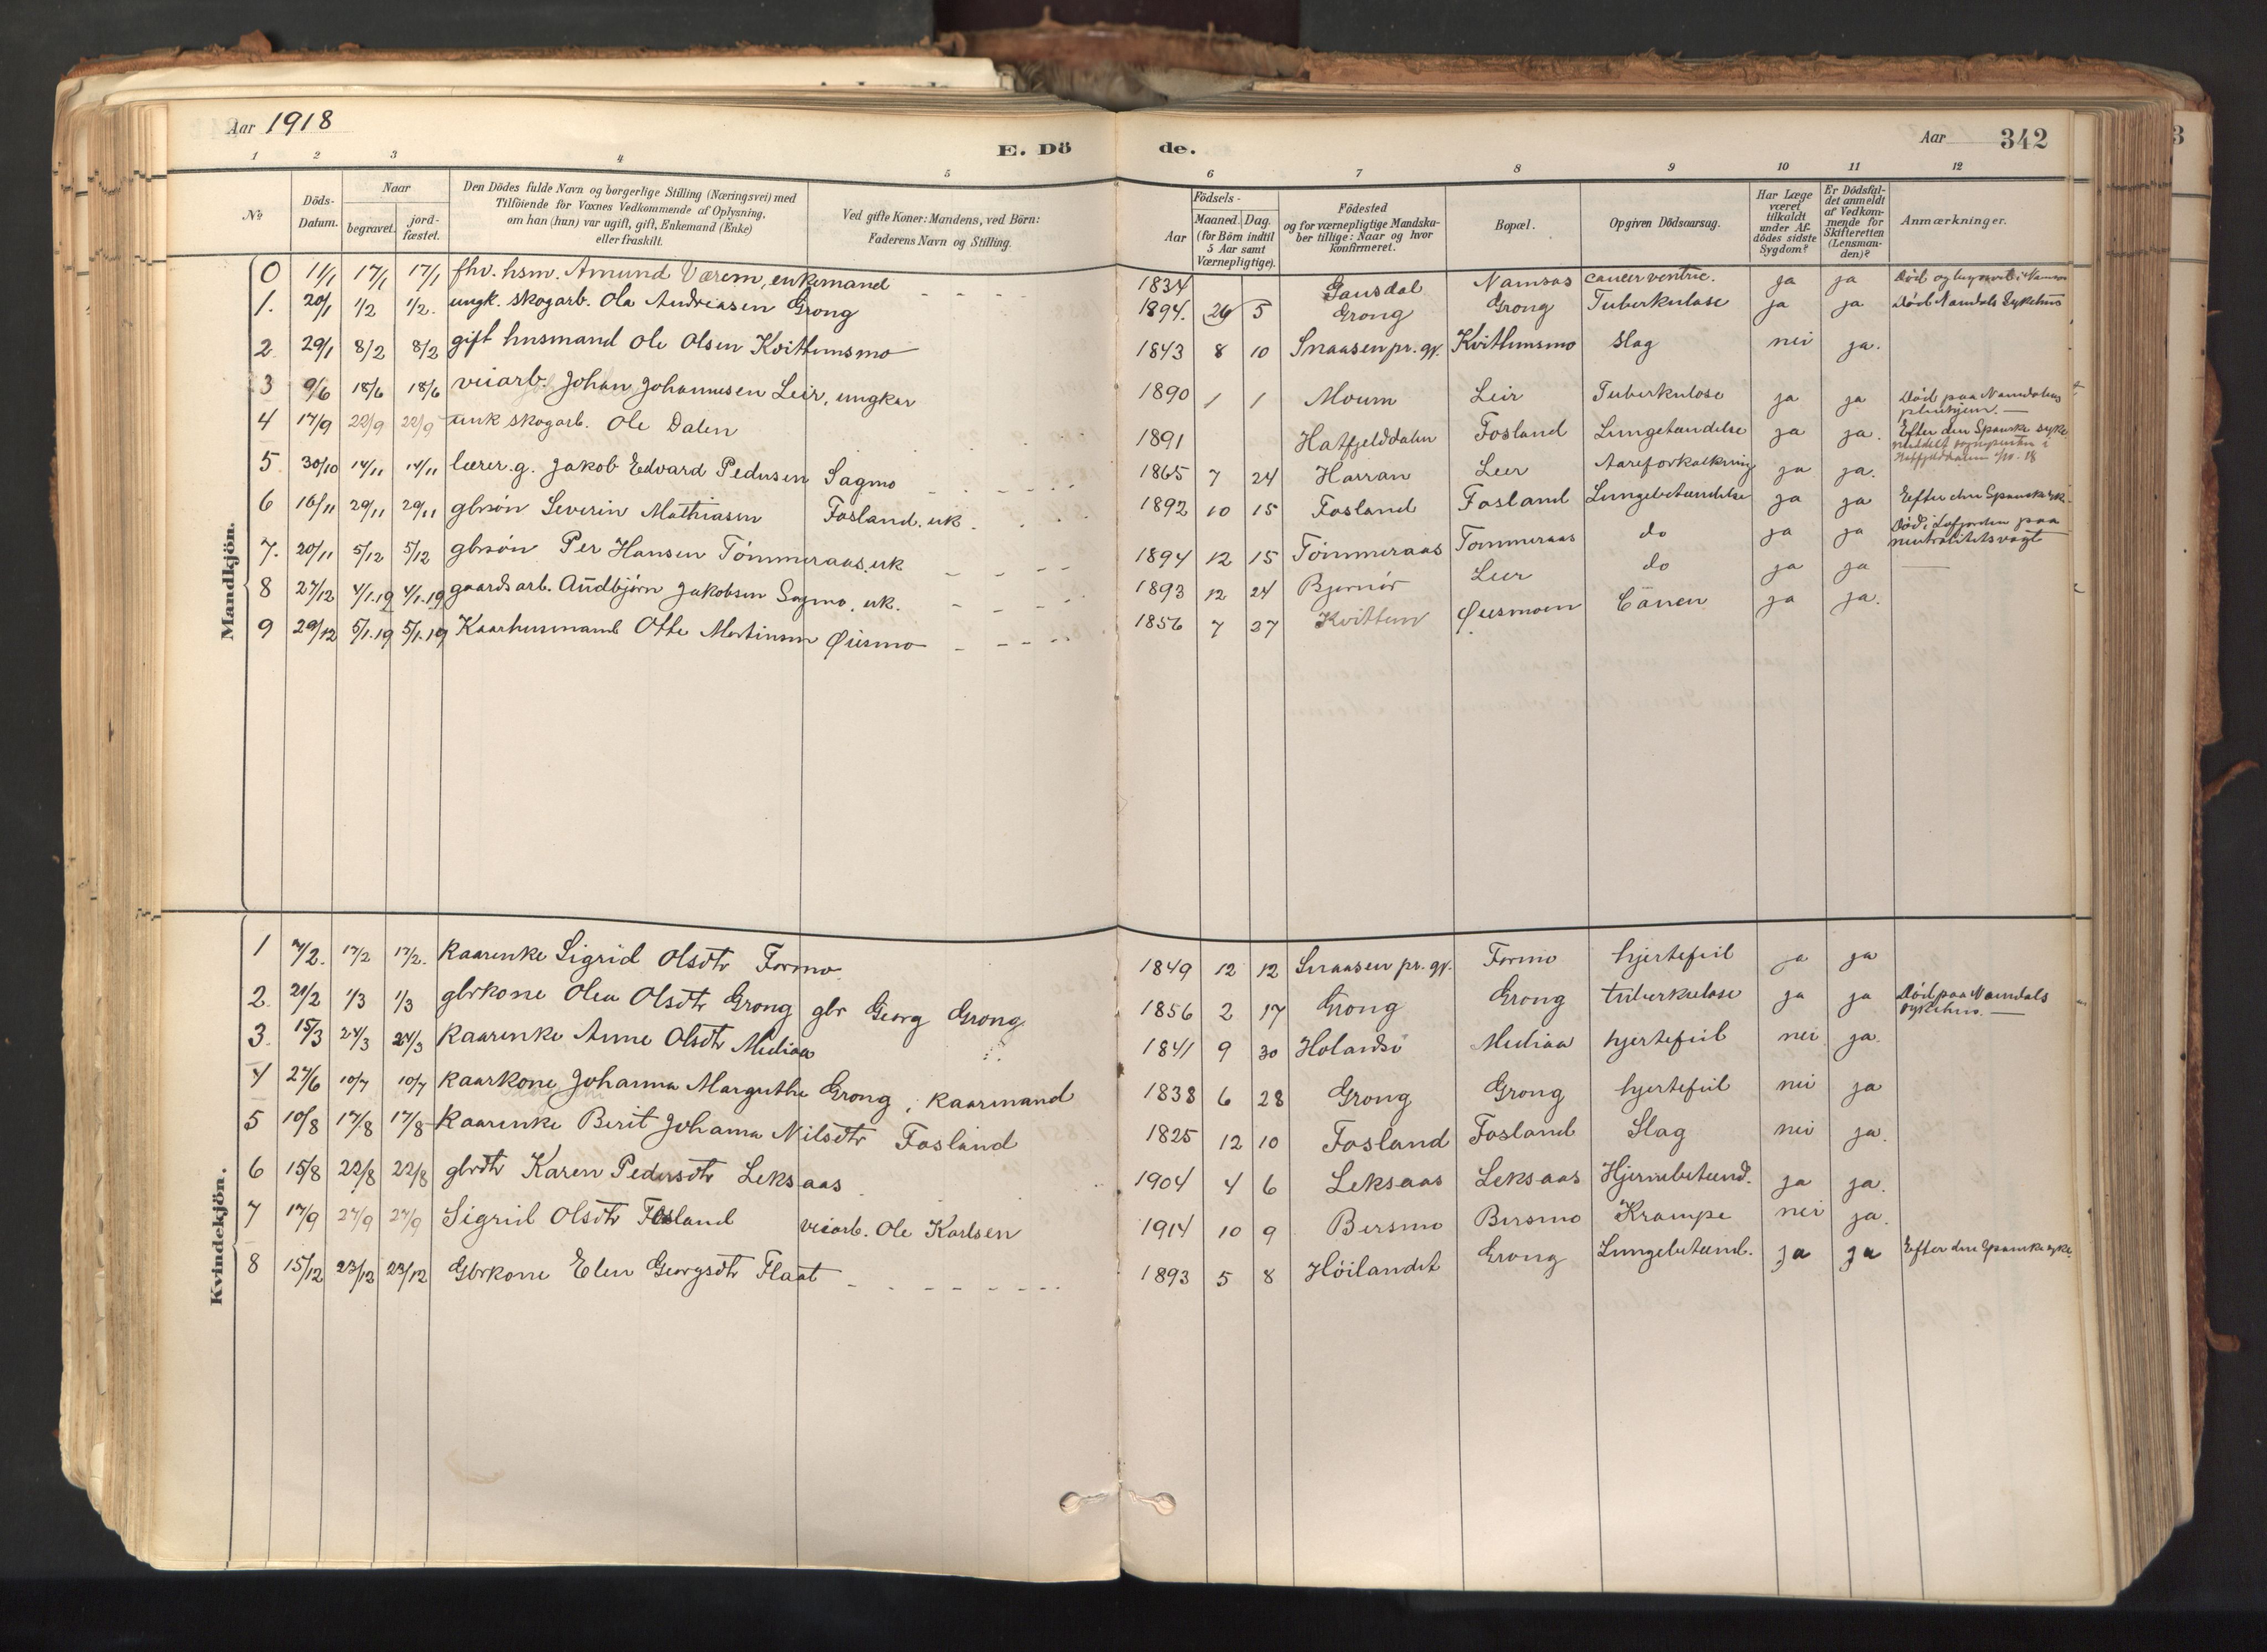 Aar 1918
E. Döde.
Aar 342
1 2 3 4 5 6 7 8 9 10 11 12
№
Döds-Datum.
Naar
begravet.
jord-fæstet.
Den Dödes fulde Navn og borgerlige Stilling (Næringsvei) med
Tilföiende for Voxnes Vedkommende af Oplysning,
om han (hun) var ugift, gift, Enkemand (Enke)
eller fraskilt.
Ved gifte Koner: Mandens, ved Börn:
Faderens Navn og Stilling.
Födsels-
Aar
Maaned. Dag.
(for Börn indtil
5 Aar samt
Værnepligtige).
Födested
og for værnepligtige Mandska-
ber tillige: Naar og hvor
konfirmeret.
Bopæl.
Opgiven Dödsaarsag.
Har Læge
været
tilkaldt
under Af-
dödes sidste
Sygdom?
Er Dödsfal-
det anmeldt
af Vedkom-
mende for
Skifteretten
(Lensman-
den)?
Anmærkninger.
Mandkjön.
0 11/1 17/1 17/1 fhv. hsm. Amund Værem, enkemand 1834 Gausdal Namsos cancer ventric. ja ja Död og begravet i Namsos
1. 20/1 1/2 1/2. ungk. skogarb. Ola Andreasen Grong 1894. 26 5 Grong Grong Tuberkulose ja ja Död Namdals Sykehus
2 29/1 8/2 8/2 gift husmand Ole Olsen Kvitemsmo 1843 8 10 Snaasen pr. gj. Kvitemsmo Slag nei ja.
3 9/6 18/6 18/6 veiarb. Johan Johannesen Leir, ungkar 1890 1 1 Moum Leir Tuberkulose ja ja Död paa Namdalens
pleiehjem.
4 17/9 22/9 22/9 unk skogarb. Ole Dalen 1891 Hatfjelddalen Fosland Lungetændelse ja ja. Efter den Spanske syke
meddelt sognepresten i
Hatfjelddalen
5 30/10 14/11 14/11 lærer. g. Jakob Edvard Pedersen Sagmo 1865 7 24 Harran Leer Aareforkalkning ja ja.
6 16/11 29/11 29/11 gbrsön Severin Mathiasen Fosland. uk. 1892 10 15 Fosland Fosland Lungebetændelse ja ja Efter den Spanske syk.
7. 20/11 5/12 5/12 gbrsön Per Hansen Tömmeraas. uk 1894 12 15 Tömmeraas Tömmeraas do ja ja Död i Lofjorden paa
neutralitetsvagt
8 27/12 4/1.19 4/1.19 gaardsarb. Audbjörn Jakobsen Sagmo, uk. 1893 12 24 Bjørnör Leer do ja ja
9 29/12 5/1.19 5/1.19 Kaarhusmand Otte Martinsen Øiesmo 1856 7 27 Kvittem Øiesmoen Cancer ja ja.
Kvindekjön.
1 7/2. 17/2 17/2. Kaarenke Sigrid Olsdtr Formo 1849 12 12 Snaasen pr. gj. Formo hjertefeil ja ja
2. 21/2 1/3 1/3 gbrkone Olea Olsdtr Grong gbr Georg Grong 1856 2 17 Grong Grong tuberkulose ja ja Död paa Namdals
sykehus.
3. 15/3 24/3 24/3 Kaarenke Anne Olsdtr Mediaa 1841 9 30 Holandsö Mediaa hjertefeil nei ja.
4 27/6 10/7 10/7 Kaarkone Johanna Margrethe Grong, Kaarmand 1838 6 28 Grong Grong hjertefeil nei ja
5 10/8 17/8 17/8 Kaarenke Berit Johanna Nilsdtr Fosland 1825 12 10 Fosland Fosland Slag nei ja.
6 15/8 22/8 22/8 gbrdtr Karen Pedersdtr Leksaas 1904 4 6 Leksaas Leksaas Hjernebetænd. ja ja.
7 17/9 27/9 27/9 Sigrid Olsdtr Fosland veiarb. Ole Karlsen 1914 10 9 Bersmo Bersmo Krampe nei ja.
8 15/12 23/12 23/12 Gbrkone Elen Georgsdtr Flaat 1893 5 8 Höilandet Grong Lungebetænd. ja ja Efter den Spanske syke